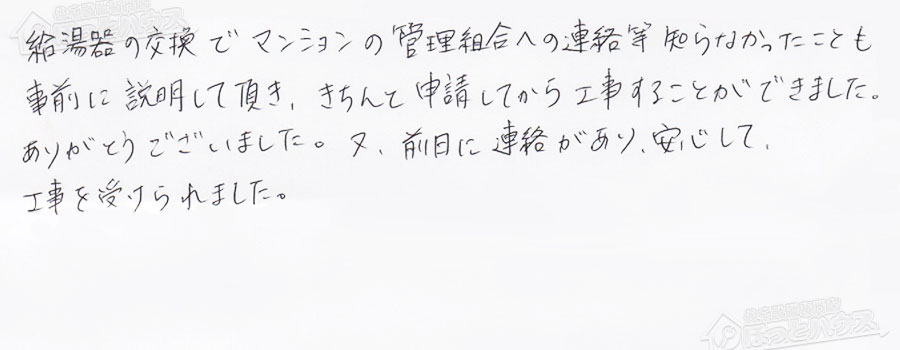 給湯器の交換でマンションの管理組合への連絡等知らなかったことも
事前に説明して頂き、きちんと申請してから工事することができました。
ありがとうございました。又、前日に連絡があり、安心して、
工事を受けられました。
ほっとハウス